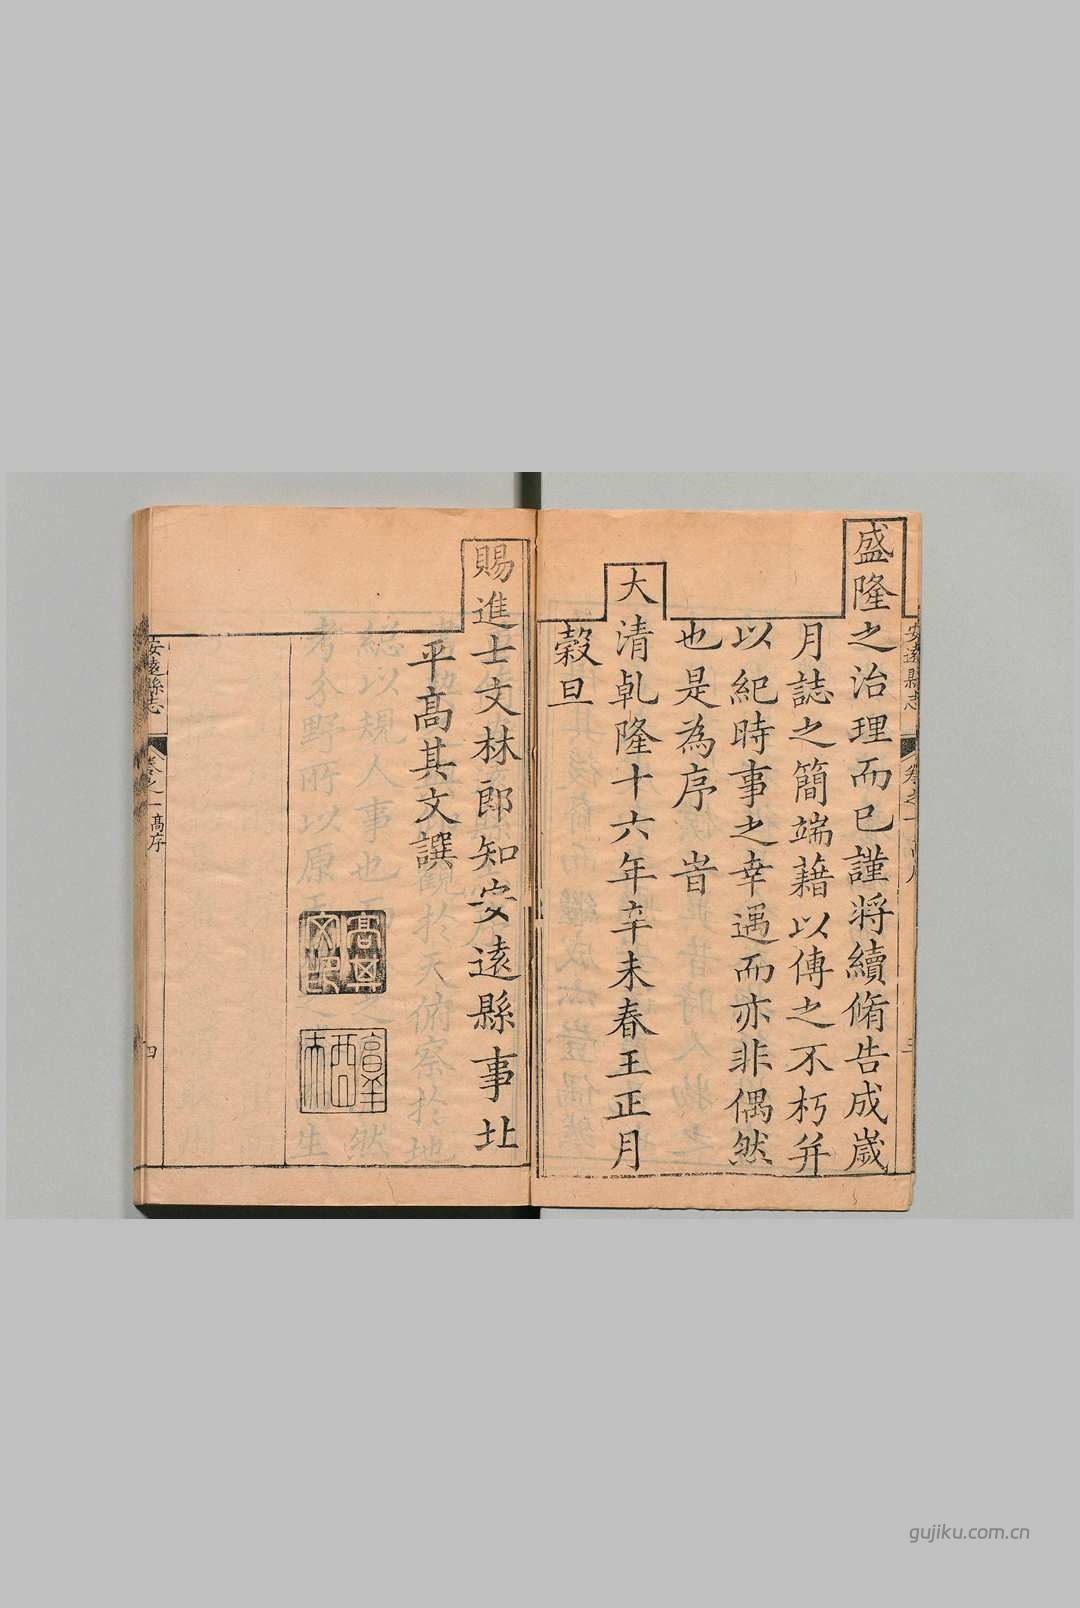 盛隆之治理而已謹將續脩告成歲
月誌之簡端藉以傳之不朽并
以紀時事之幸遇而亦非偶然
也是為序旹
大清乹隆十六年辛未春王正月
穀旦
賜進士文林郎知安遠縣事北
平高其文譔
安遠縣志
卷之一
三
高其文印
安遠縣志
卷之一
高序
四
gujiku.com.cn